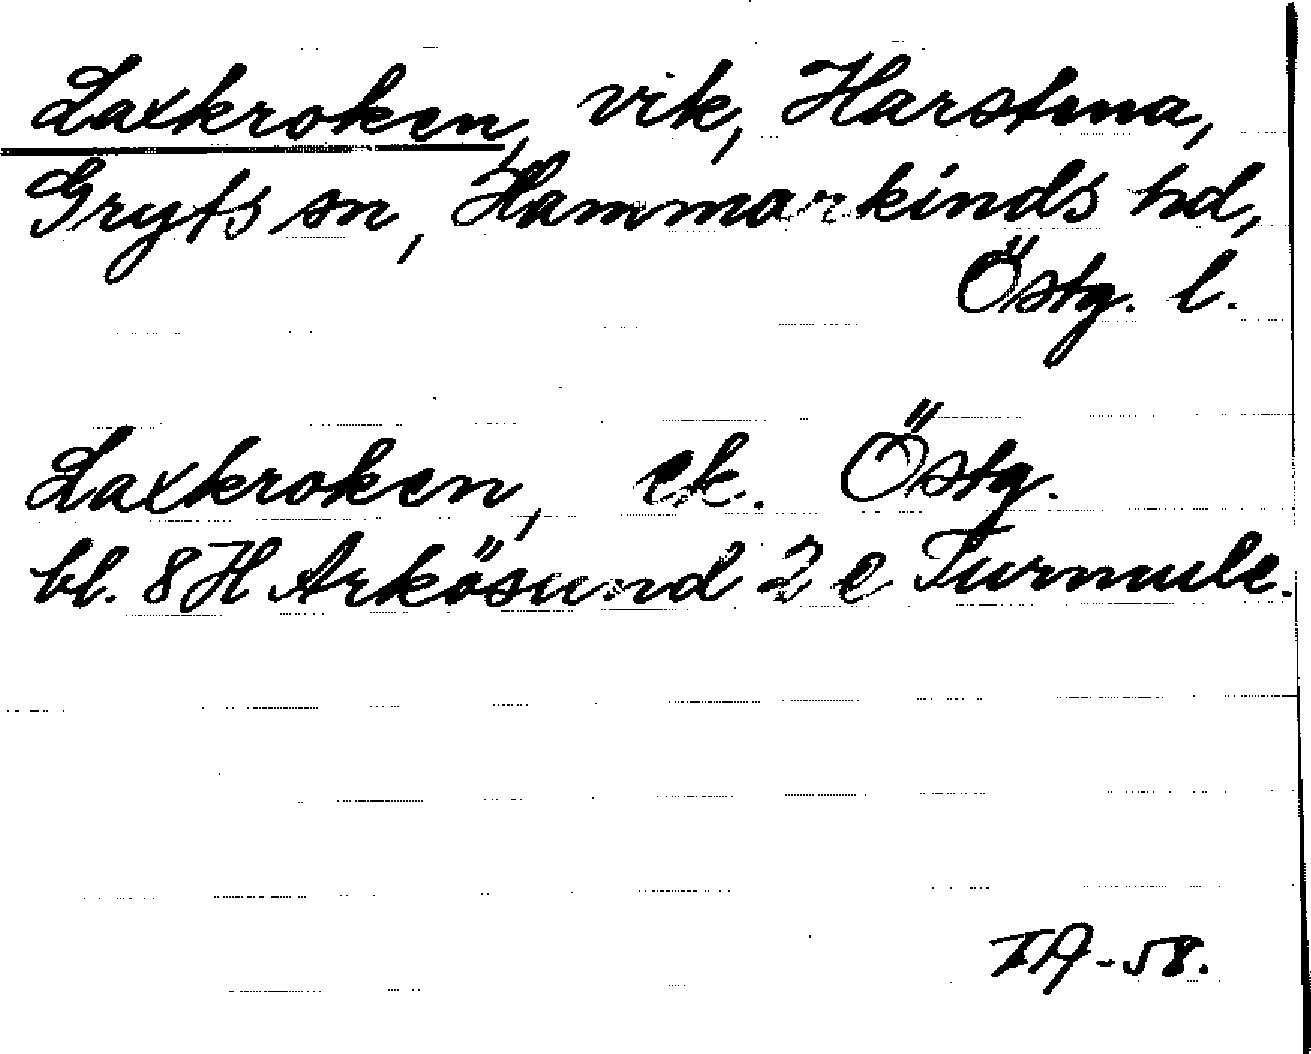 Laxkroken, vik, Harstena,
Gryts sn, Hammarkinds hd,
Östg. l.
Laxkroken, ek. Östg.
bl. 8 H Arkösund 2 e Turmule.
IA-58.